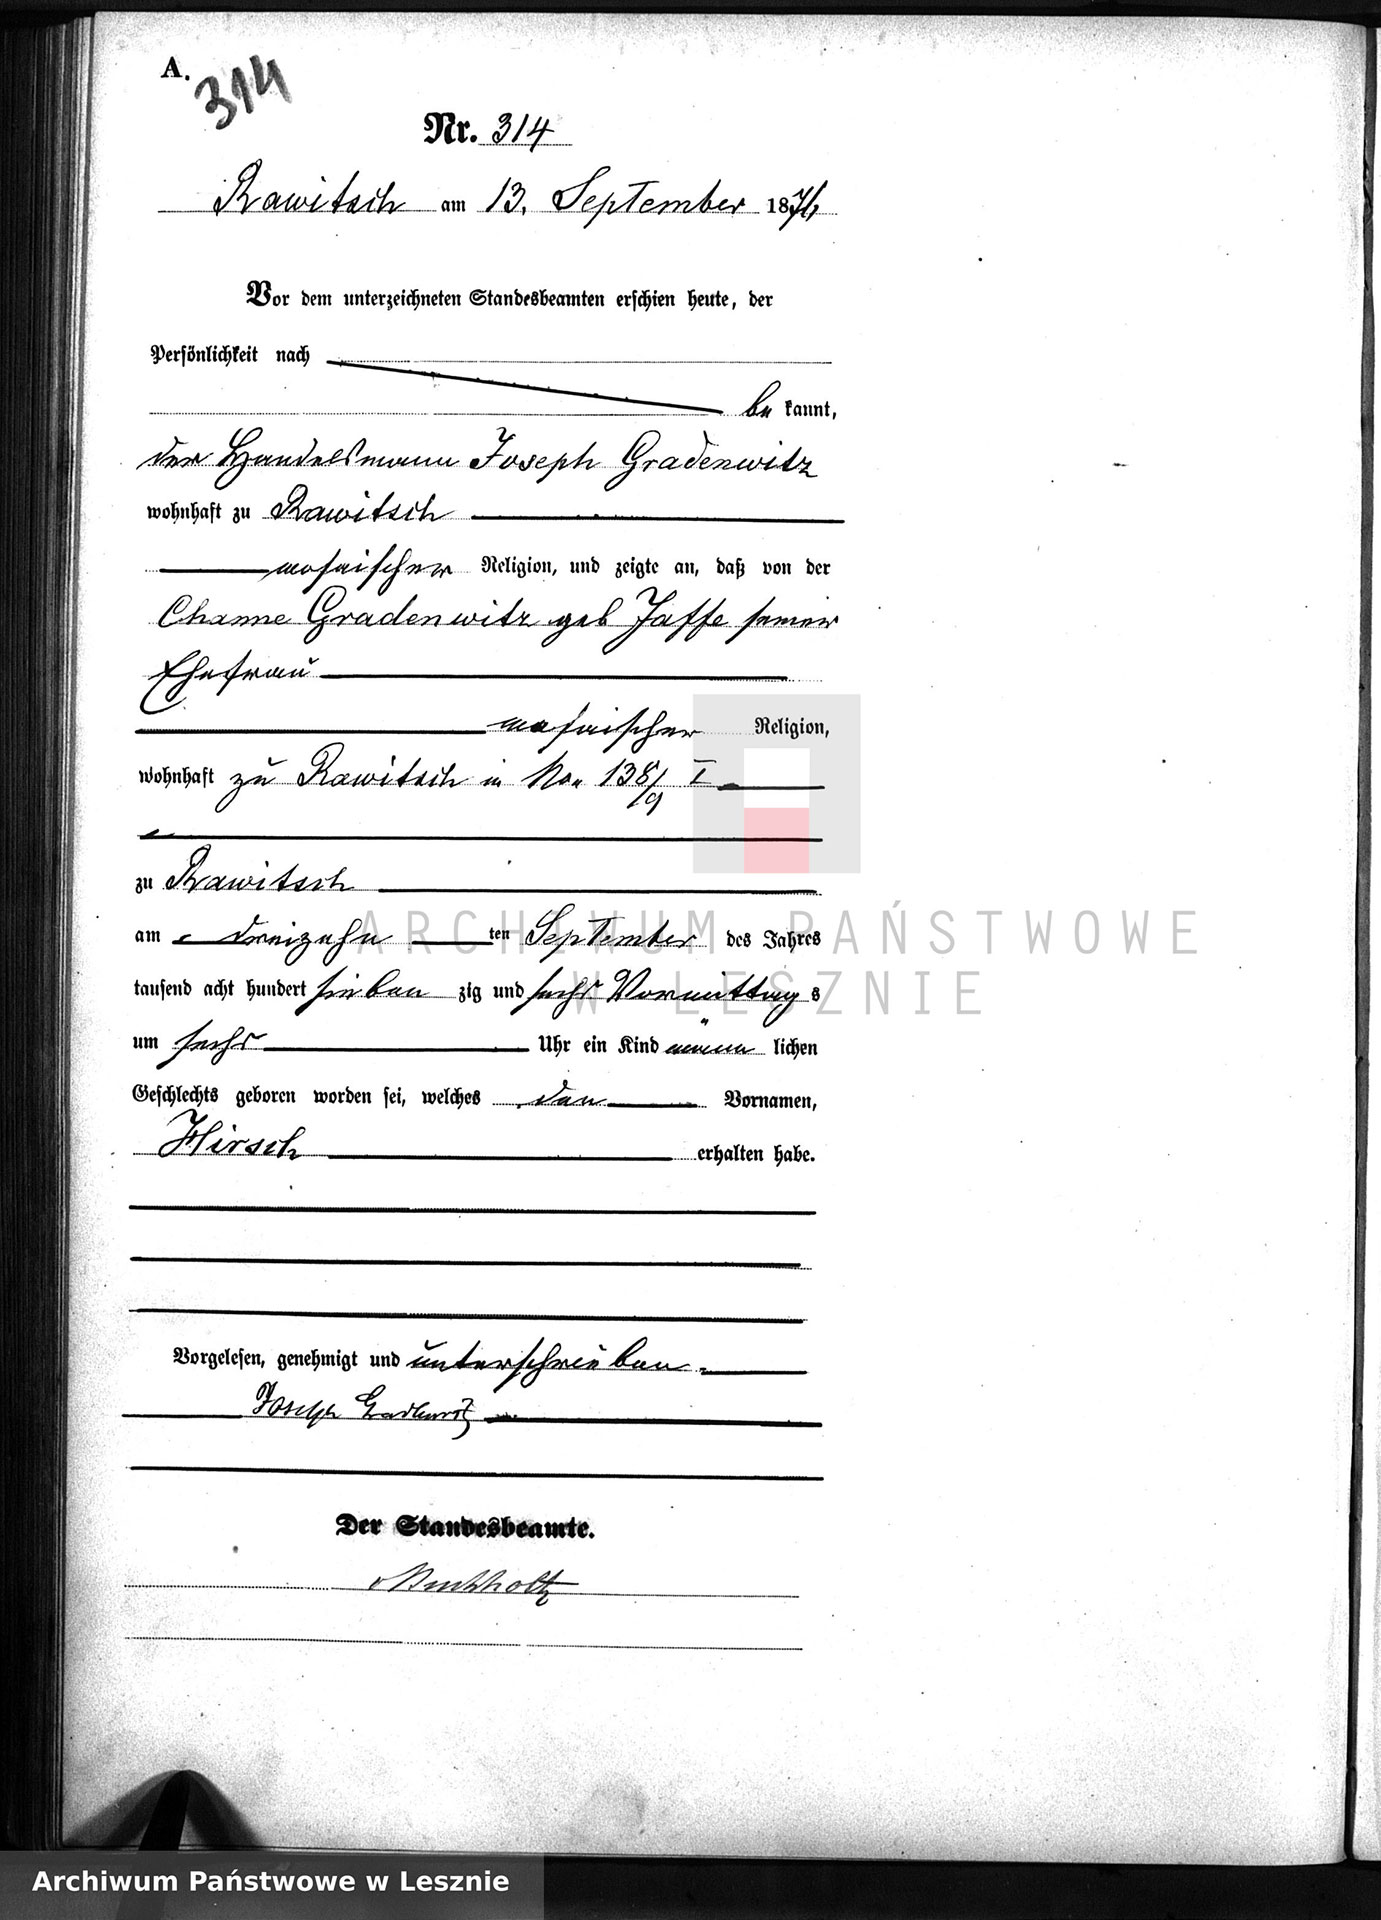 A.
314
Nr. 314
Rawitsch am 13. September 1876
Vor dem unterzeichneten Standesbeamten erschien heute, der
Persönlichkeit nach
be kannt,
der Handelsmann Joseph Gradenwitz
wohnhaft zu Rawitsch
mosaischer Religion, und zeigte an, daß von der
Channe Gradenwitz geb Jaffe seiner
Ehefrau
mosaischer Religion,
wohnhaft zu Rawitsch in No. 138/9 I
zu Rawitsch
am dreizehn ten September des Jahres
tausend acht hundert sieben zig und sechs Vormittag s
um sechs Uhr ein Kind männ lichen
Geschlechts geboren worden sei, welches den Vornamen,
Hirsch erhalten habe.
Vorgelesen, genehmigt und unterschrieben
Joseph
Der Standesbeamte.
ARCHIWUM PAŃSTWOWE
W LESZNIE
Archiwum Państwowe w Lesznie